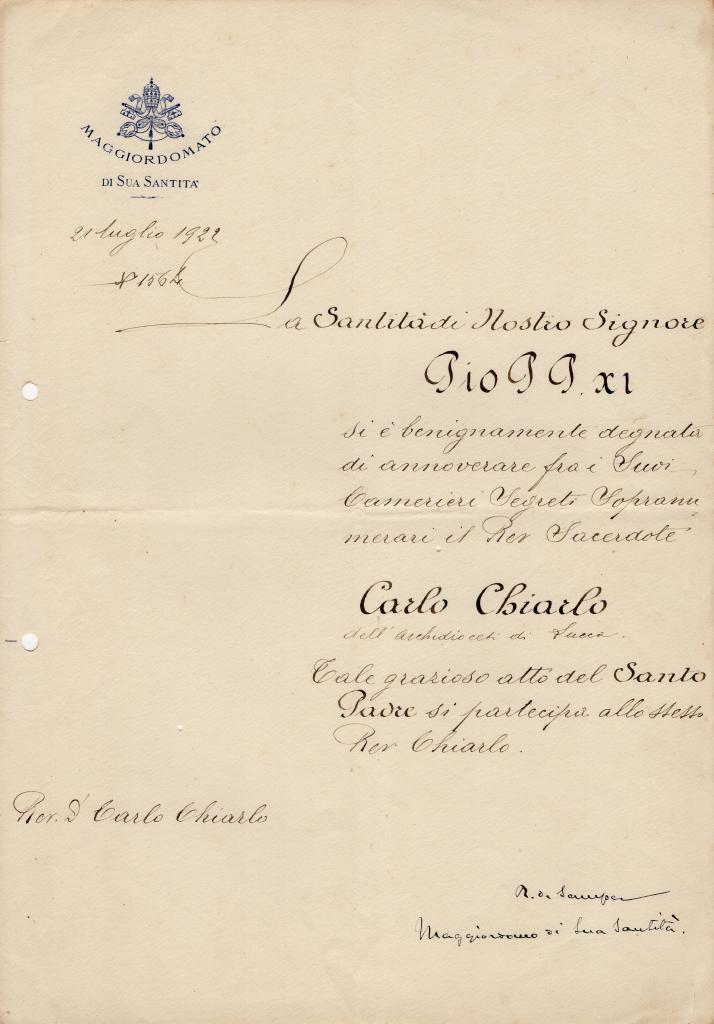 MAGGIORDOMATO
DI SUA SANTITA'
21 luglio 1922
La Santità di Nostro Signore
Pio PP. XI
si è benignamente degnata
di annoverare fra i Suoi
Camerieri Segreti Sopranu
merari il Rev Sacerdote
Carlo Chiarlo
dell'Archidiocesi di Lucca.
Tale grazioso atto del Santo
Padre si partecipa allo stesso
Rev Chiarlo.
Rev. D Carlo Chiarlo
R. de Samper
Maggiordomo di Sua Santità.